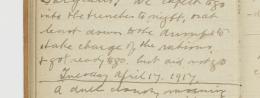 Sergeants. We expect to go
into the trenches to night, or at
least down to the dumps to
take charge of the rations,
& got ready to go, but did not go
Tuesday April 17. 1917.
A dull cloudy morning